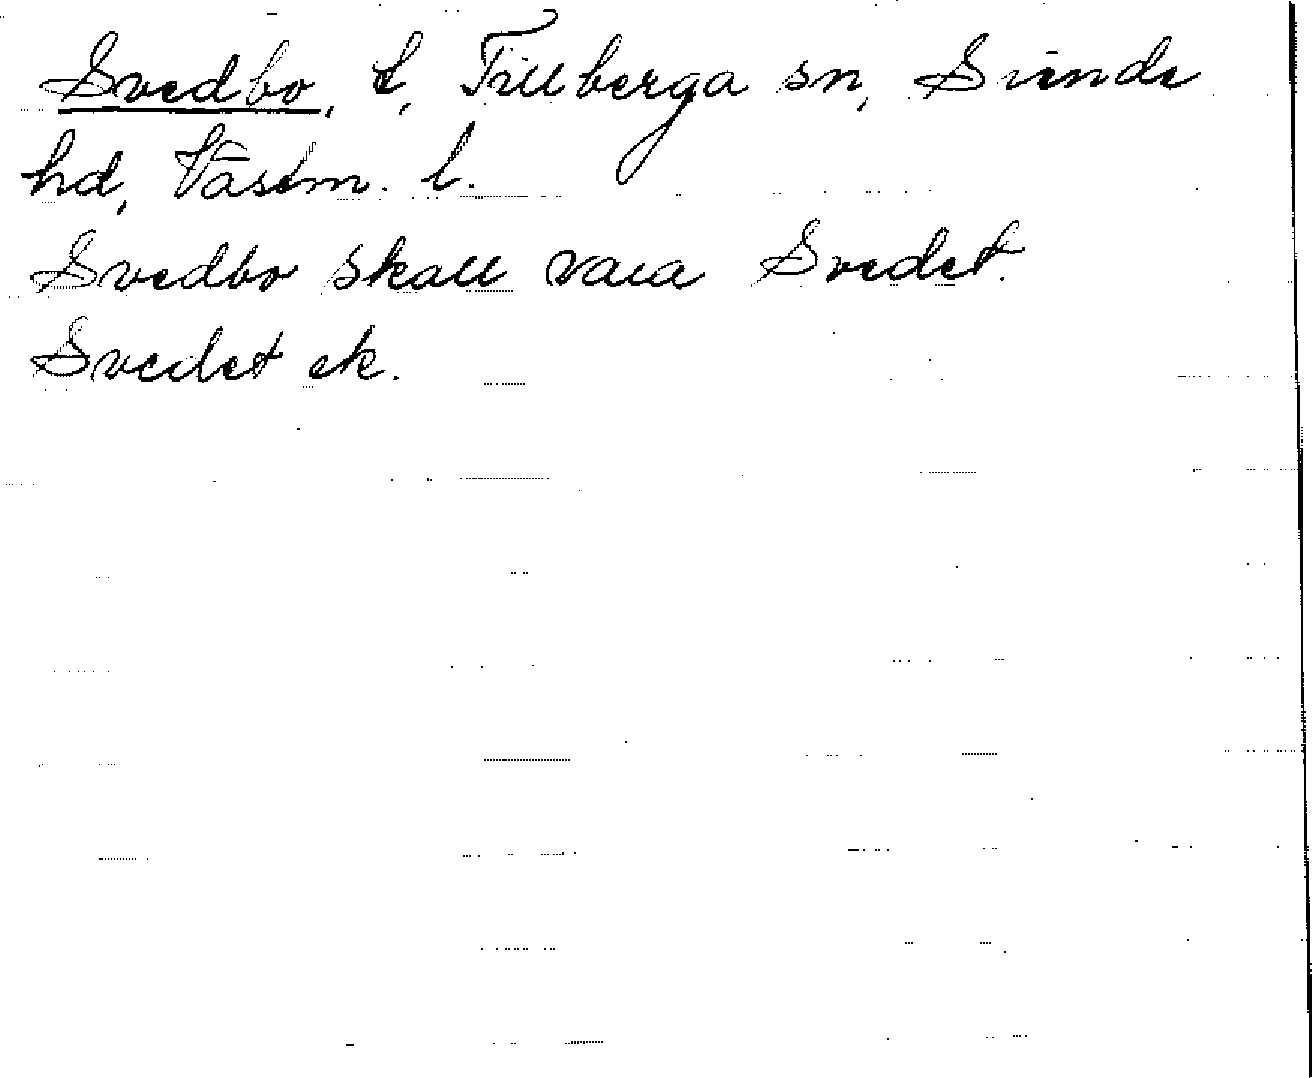 Svedbo, t, Tillberga sn, Siende
hd, Västm. l.
Svedbo skall vara Svedet.
Svedet ek.